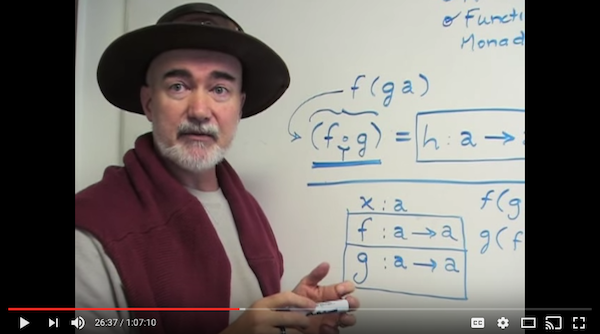 o Functi
Monad
f(ga)
(f ; g) = h : a →
x : a
f : a → a
g : a → a
f(g
g(f
26:37 / 1:07:10
CC